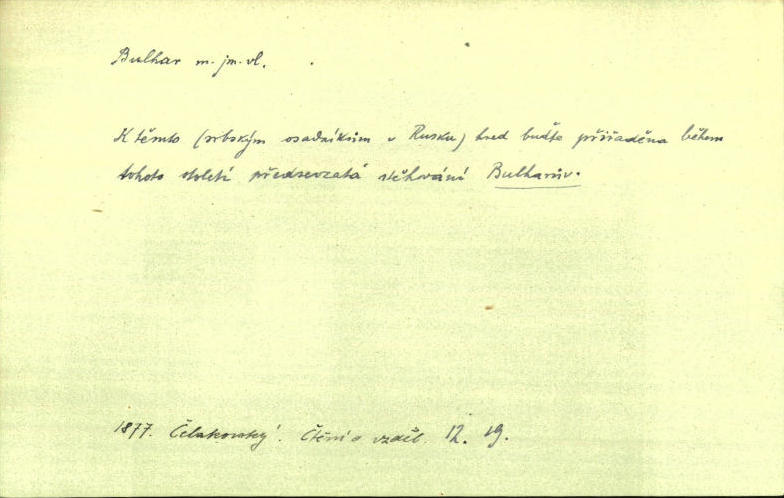 Bulhar m. jm. vl.
K těmto (srbským osadníkům v Rusku) hned buďte přiřaděna během
tohoto století předsevzatá stěhování Bulharův.
1877. Čelakovský. Čtení o vzděl. 12. 19.